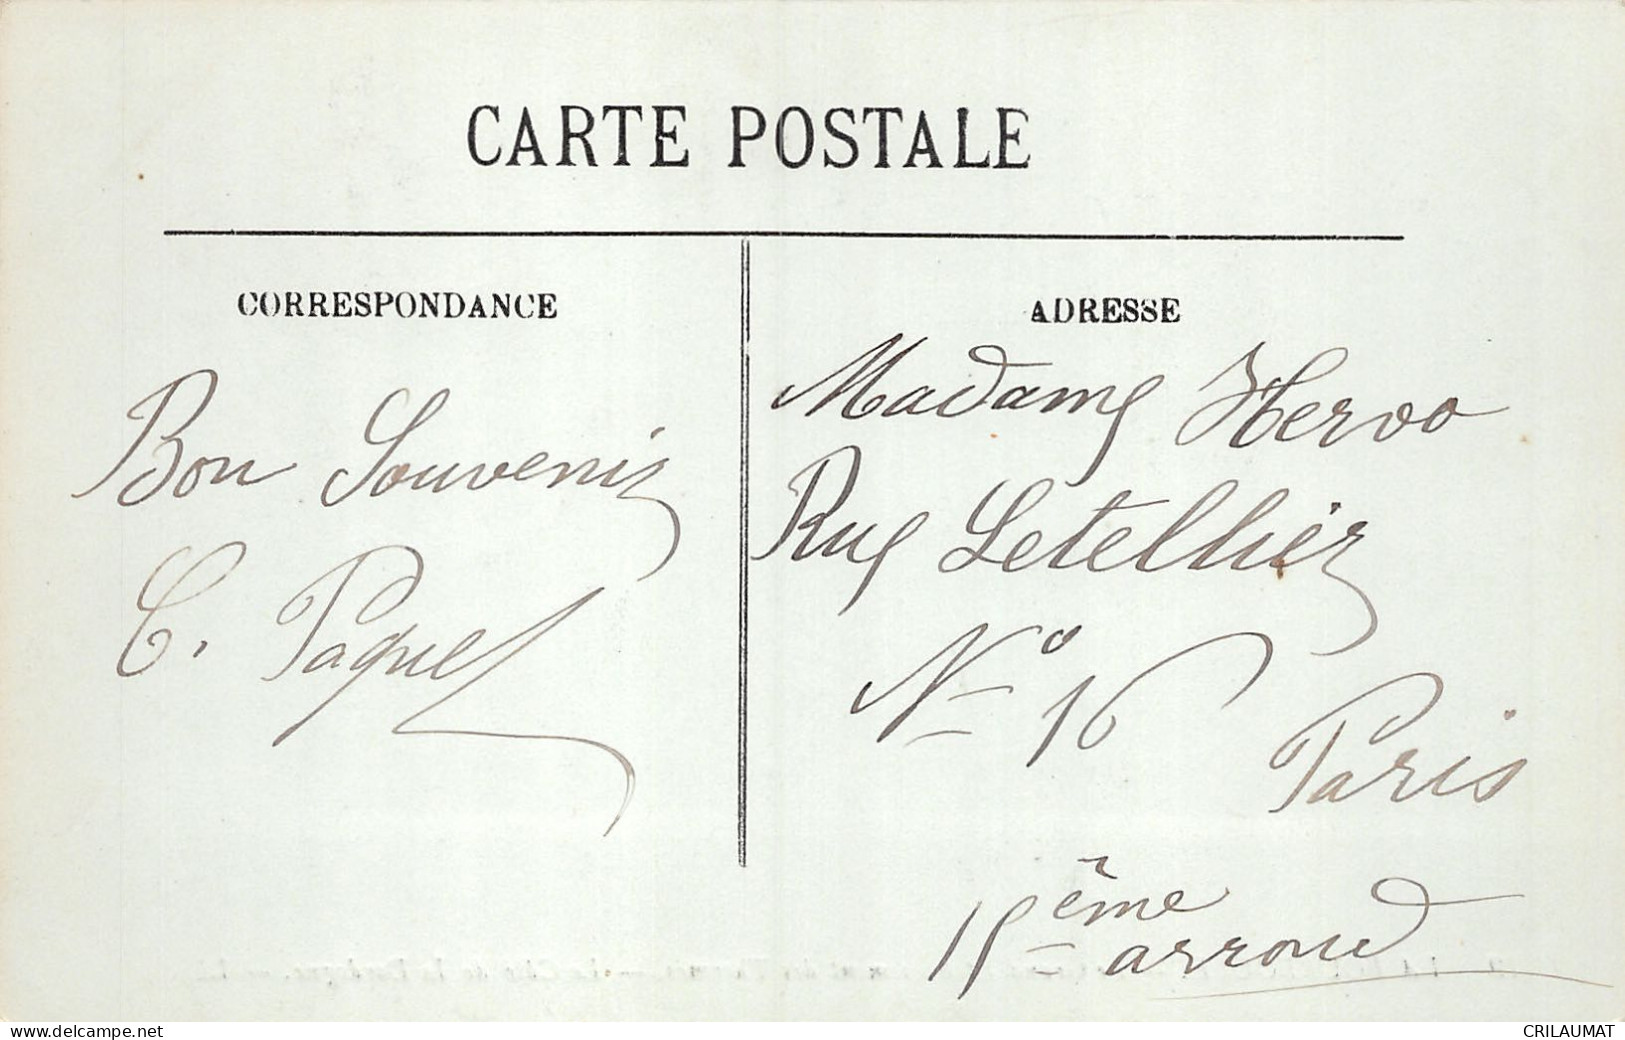 CARTE POSTALE
CORRESPONDANCE
Bon Souvenir
C. Paquet
ADRESSE
Madame Hervo
Rue Letellier
No 16
Paris
15ème arrond
www.delcampe.net
CRILAUMAT